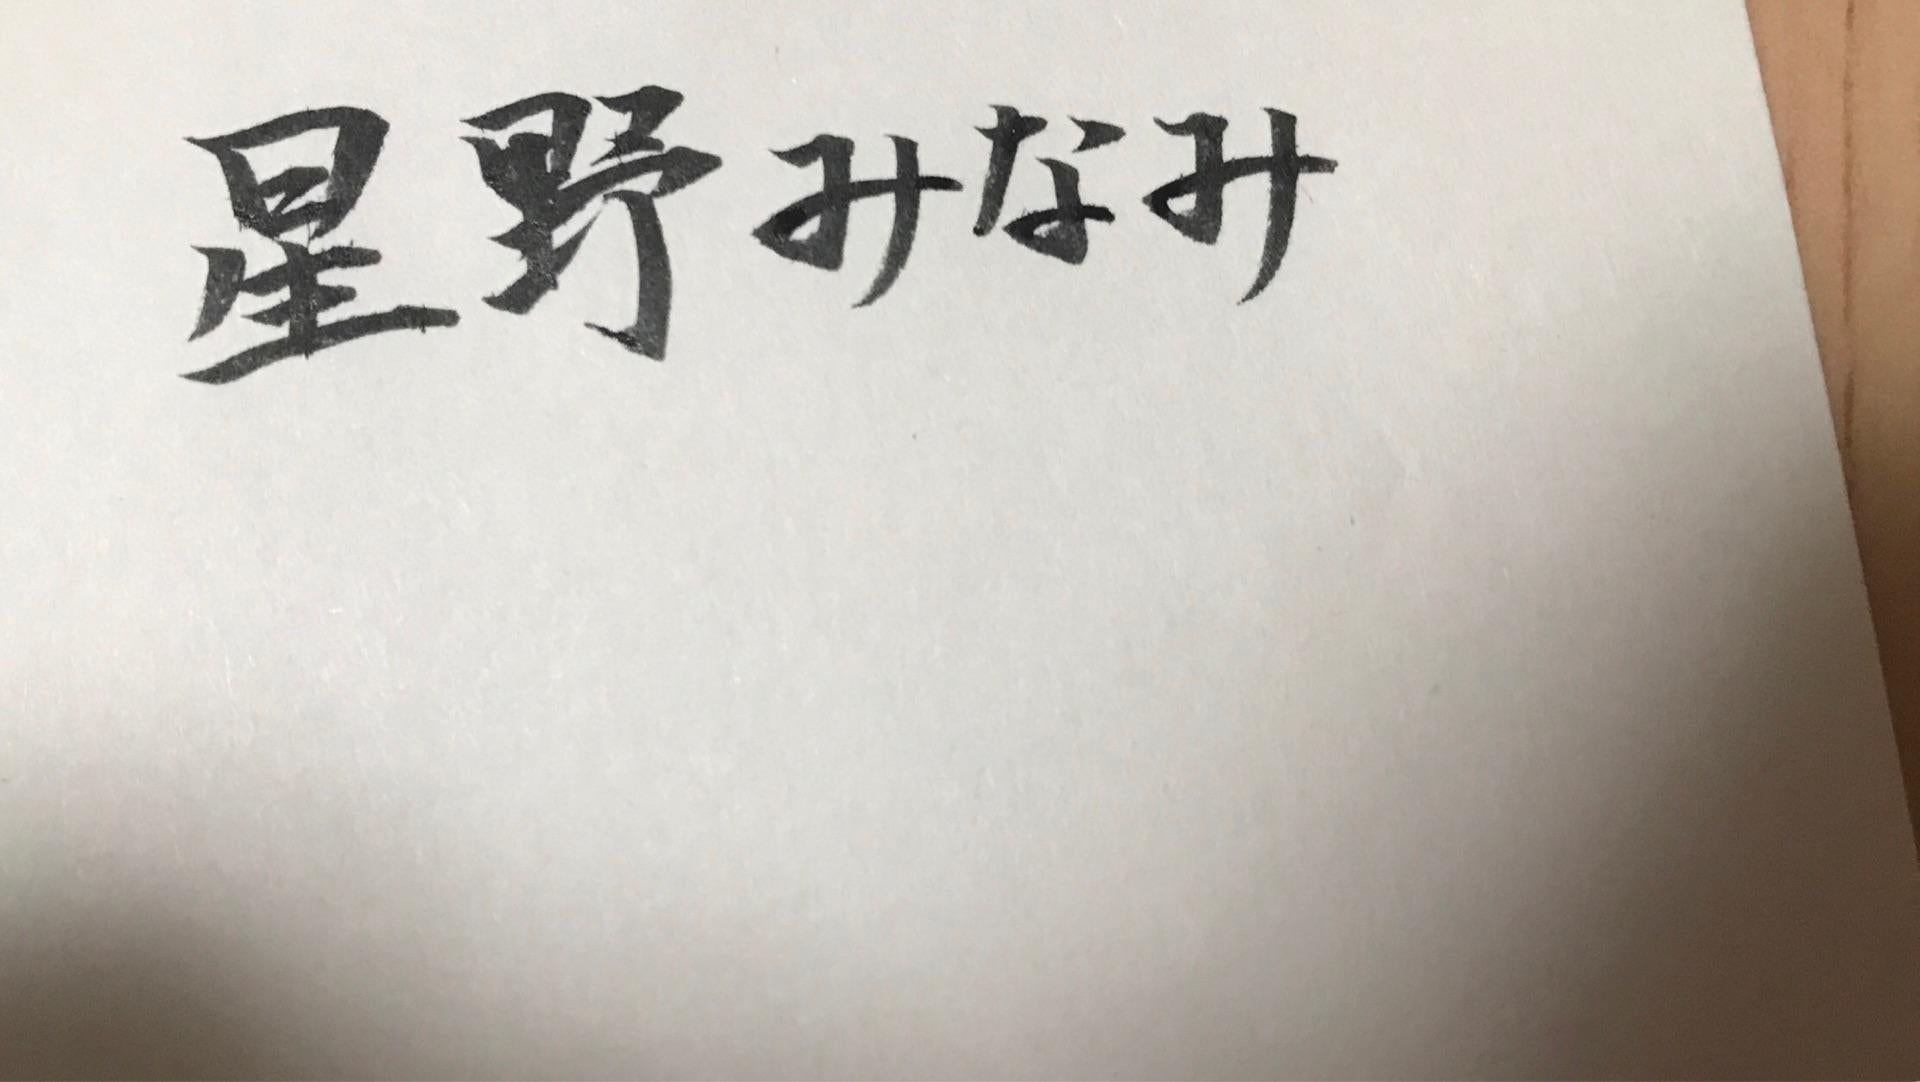 星野みなみ